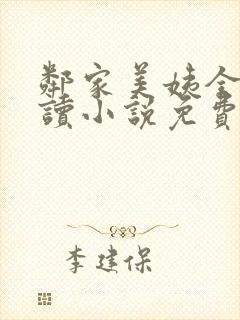 鄰家美姨全
讀小說免費
李建保